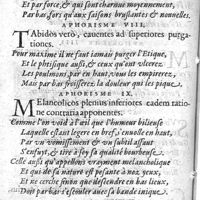 Et par force, & qui sont charnus moyennement,
Par bas fors qu'aux saisons bruslantes & nouuelles.
APHORISME VIII.
TAbidos verò, cauentes ad superiores purga-
tiones.
Pour maxime il ne faut iamais purger l'Etique,
Et le phtisique aussi, & ceux qui ont vlcerez
Les poulmons, par en haut, vous les empirerez,
Mais par bas froisserez la douleur qui les pique.
APHORISME IX.
MElancolicos plenius inferiores eadem ratio-
ne contraria apponentes.
Comme l'on void à l'œil que l'humeur bilieuse
Laquelle estant legere en bref, s'enuole en haut,
Par vn vomissement & vn subtil assaut
S'enfuit, & tire à soy sa qualité hourbeuse.
Celle aussi qu'appellons vrayment melancholique
Et qui de sa nature est pesante à nos yeux,
Et ne cerche sinon que descendre en bas lieux,
Doit par bas s'escouler auec sa bande inique.